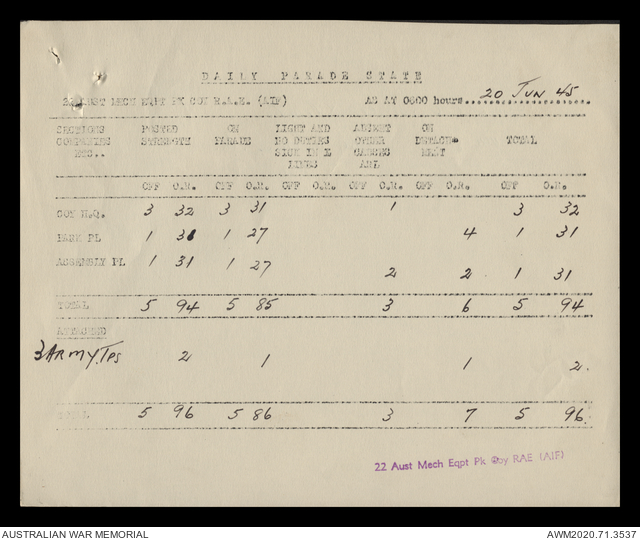 DAILY PARADE STATE
22 AUST MECH EQPT PK COY R.A.E. (AIF) AS AT 0600 hours 20 Jun 45
SECTIONS POSTED ON LIGHT AND ABSENT ON
COMPANIES STRENGTH PARADE NO DUTIES OTHER DETACH- TOTAL
ETC.. SICK IN E CAUSES MENT
LINES AWL
OFF O.R. OFF O.R. OFF O.R. OFF O.R. OFF O.R. OFF O.R.
COY H.Q. 3 32 3 31 1 3 32
PARK PL 1 31 1 27 4 1 31
ASSEMBLY PL 1 31 1 27 2 2 1 31
TOTAL 5 94 5 85 3 6 5 94
ATTACHED
3 ARMY. Tps 2 1 1 2.
TOTAL 5 96 5 86 3 7 5 96.
22 Aust Mech Eqpt Pk Coy RAE (AIF)
AUSTRALIAN WAR MEMORIAL AWM2020.71.3537